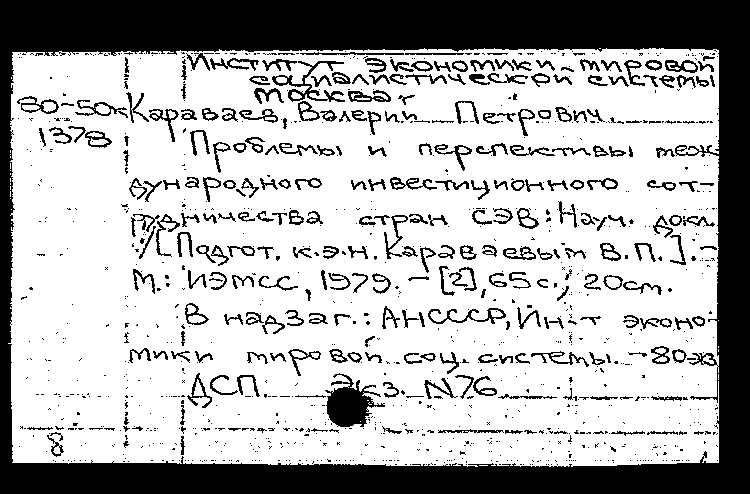 Институт экономики мировой
социалистической системы
Москва
80-50к Караваев, Валерий Петрович.
1378
Проблемы и перспективы меж-
дународного инвестиционного сот-
рудничества стран СЭВ: Науч. докл.
/[Подгот. к.э.н. Караваевым В.П.]. –
М.: ИЭМСС, 1979. – [2], 65 с.; 20 см.
В надзаг.: АН СССР, Ин-т эконо-
мики мировой соц. системы. – 80 экз
ДСП. Экз. N76
8